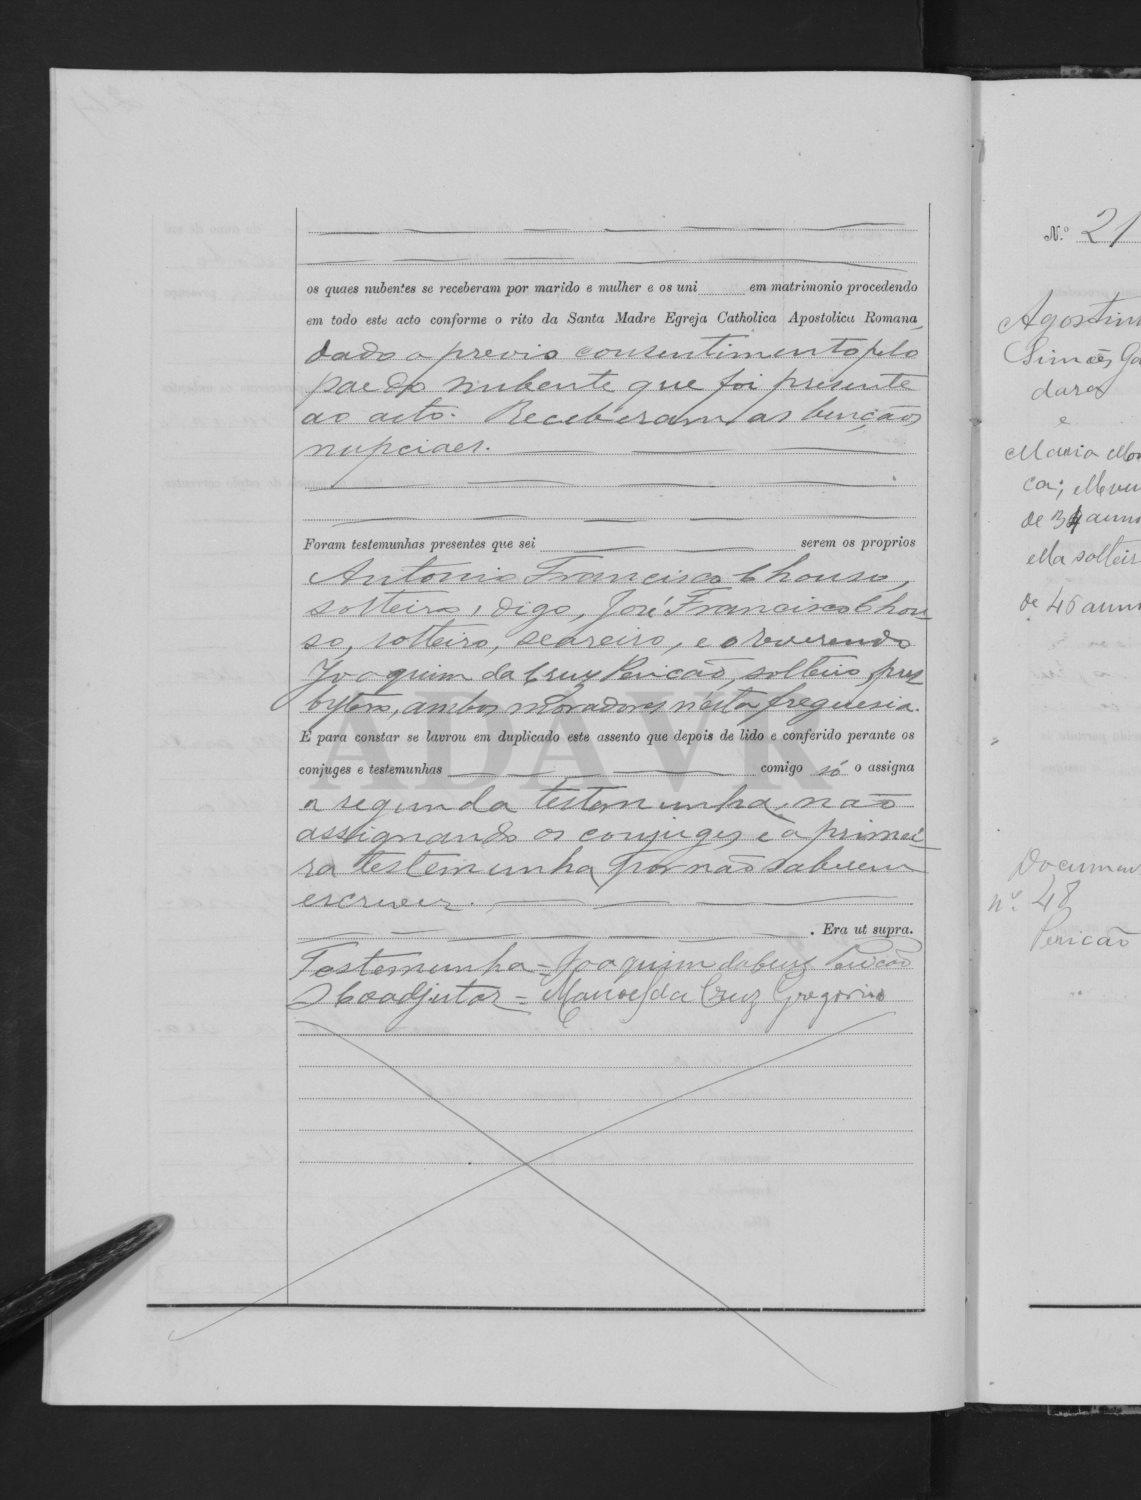 os quaes nubentes se receberam por marido e mulher e os uni em matrimonio procedendo
em todo este acto conforme o rito da Santa Madre Egreja Catholica Apostolica Romana,
dado o previo consentimento pelo
pae do nubente que foi presente
ao acto. Receberam as bençãos
nupciaes.
Foram testemunhas presentes que sei serem os proprios
Antonio Francisco Chouso,
solteiro, digo, José Francisco Chou-
so, solteiro, seareiro, e o reverendo
Joaquim da Cruz Pericão, solteiro, pres
bytero, ambos moradores n'esta freguesia.
E para constar se lavrou em duplicado este assento que depois de lido e conferido perante os
conjuges e testemunhas comigo só o assigna
a segunda testemunha, não
assignando os conjuges e a primei-
ra testemunha por não saberem
escrever.
. Era ut supra.
Testemunha = Joaquim da Cruz Pericão
O Coadjutor = Manoel da Cruz Gregorio
ADAVR
N.º 21
Agostin
Simões Ga
daro
e
Maria Mon
ca;
de 34 anno
ella solteir
de 46 ann
Documen
nº 48
Pericão